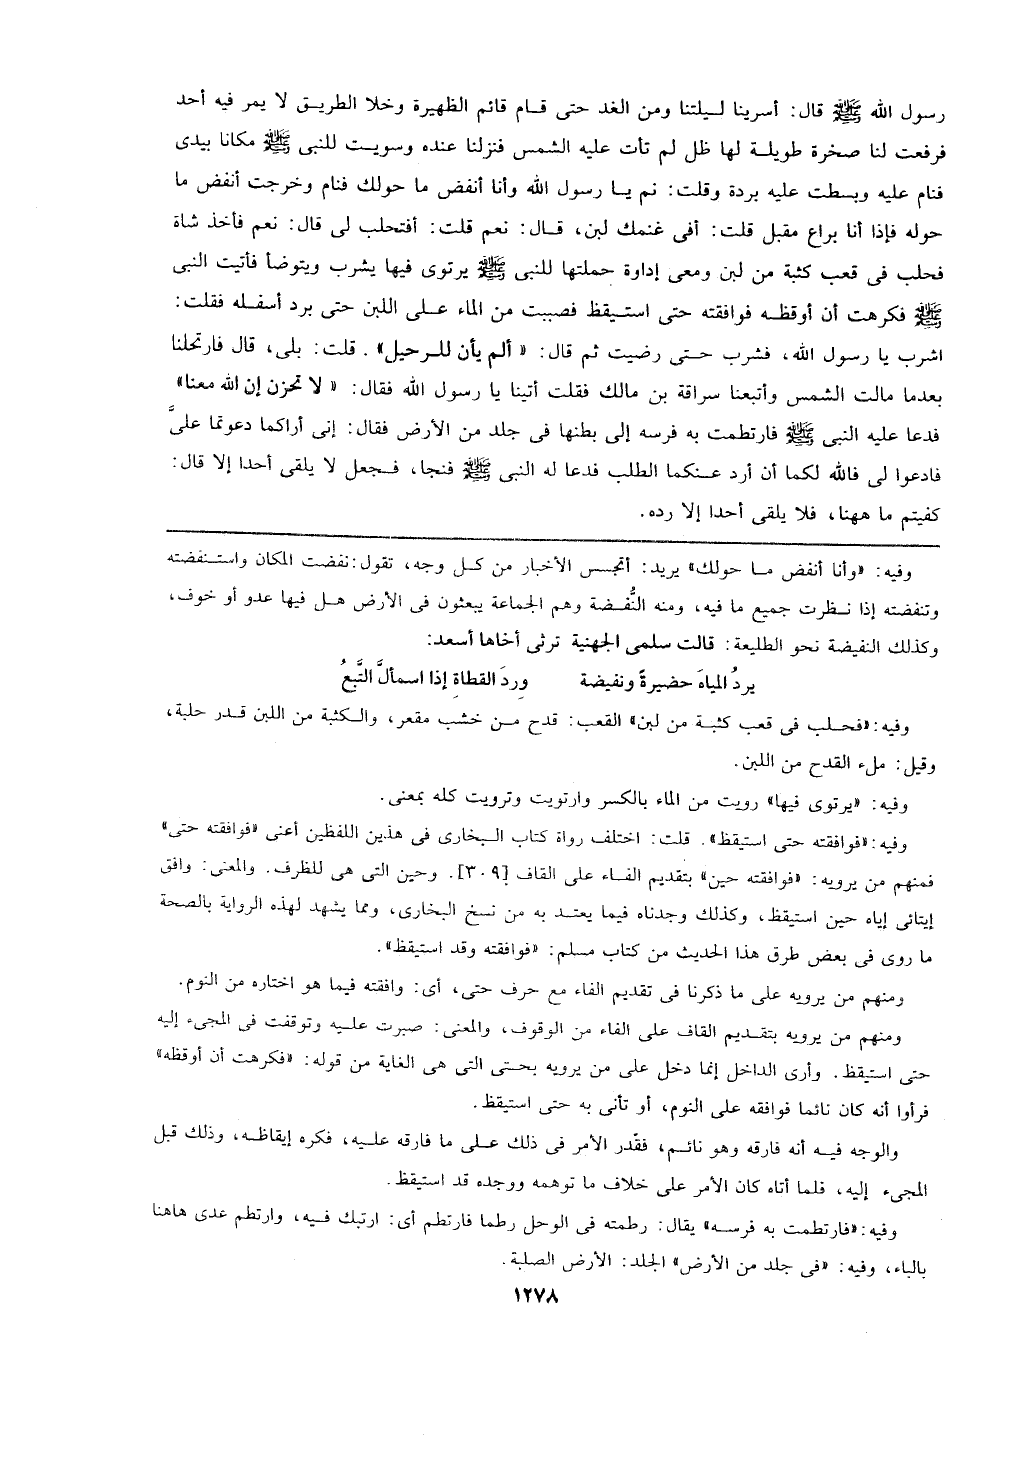 رسول الله ﷺ قال: أسرينا لـيلتنا ومن الغد حتى قـام قائم الظهيرة وخلا الطريـق لا يمر فيه أحد
فرفعت لنا صخرة طويلـة لها ظل لم تأت عليه الشمس فنزلنا عنده وسويـت للنبى ﷺ مكانا بيدى
فنام عليه وبسطت عليه بردة وقلت: نم يـا رسول الله وأنا أنفض ما حولك فنام وخرجت أنفض ما
حوله فإذا أنا براع مقبل قلت: أفى غنمك لبن، قـال: نعم قلت: أفتحلب لى قال: نعم فأخذ شاة
فحلب فى قعب كثبة من لبن ومعى إداوة حملتها للنبى ﷺ يرتوى فيها يشرب ويتوضأ فأتيت النبى
ﷺ فكرهت أن أوقظـه فوافقته حتى استـيقظ فصببت من الماء عـلى اللبن حتى برد أسفـله فقلت:
اشرب يا رسول الله، فشرب حـتى رضيت ثم قال: « ألم يأن للـرحيل» . قلت: بلى، قال فارتحلنا
بعدما مالت الشمس وأتبعنا سراقة بن مالك فقلت أتينا يا رسول الله فقال: « لا تحزن إن الله معنا»
فدعا عليه النبى ﷺ فارتطمت به فرسه إلى بطنها فى جلد من الأرض فقال: إنى أراكما دعوتما علىَّ
فادعوا لى فالله لكما أن أرد عـنكما الطلب فدعا له النبى ﷺ فنجا، فـجعل لا يلقى أحدا إلا قال:
كفيتم ما ههنا، فلا يلقى أحدا إلا رده.
وفيه: «وأنا أنفض مـا حولك» يريد: أتجسس الأخبار من كـل وجه، تقول: نفضت المكان واستـنفضته
وتنفضته إذا نـظرت جميع ما فيه، ومنه النُّفـضة وهم الجماعة يبعثون فى الأرض هـل فيها عدو أو خوف،
وكذلك النفيضة نحو الطليعة: قالت سلمى الجهنية ترثى أخاها أسعد:
يردُ المياهَ حضيرةً ونفيضة وردَ القطاةِ إذا اسمألَّ التَّبعُ
وفيه: «فحـلب فى قعب كثبـة من لبن» القعب: قدح مـن خشب مقعر، والـكثبة من اللبن قـدر حلبة،
وقيل: ملء القدح من اللبن.
وفيه: «يرتوى فيها» رويت من الماء بالكسر وارتويت وترويت كله بمعنى.
وفيه: «فوافقته حتى استيقظ». قلت: اختلف رواة كتاب الـبخارى فى هذين اللفظين أعنى «فوافقته حتى»
فمنهم من يرويه: «فوافقته حين» بتقديم الفـاء على القاف [٣٠٩]. وحين التى هى للظرف. والمعنى: وافق
إيتائى إياه حين استيقظ، وكذلك وجدناه فيما يعتـد به من نسخ البخارى، ومما يشهد لهذه الرواية بالصحة
ما روى فى بعض طرق هذا الحديث من كتاب مسلم: «فوافقته وقد استيقظ».
ومنهم من يرويه على ما ذكرنا فى تقديم الفاء مع حرف حتى، أى: وافقته فيما هو اختاره من النوم.
ومنهم من يرويه بتقـديم القاف على الفاء من الوقوف، والمعنى: صبرت علـيه وتوقفت فى المجىء إليه
حتى استيقظ. وأرى الداخل إنما دخل على من يرويه بحـتى التى هى الغاية من قوله: «فكرهت أن أوقظه»
فرأوا أنه كان نائما فوافقه على النوم، أو تأنى به حتى استيقظ.
والوجه فيـه أنه فارقه وهو نائـم، فقّدر الأمر فى ذلك عـلى ما فارقه علـيه، فكره إيقاظـه، وذلك قبل
المجىء إليه، فلما أتاه كان الأمر على خلاف ما توهمه ووجده قد استيقظ.
وفيه: «فارتطمت به فرسـه» يقال: رطمته فى الوحل رطما فارتطم أى: ارتبك فـيه، وارتطم عدى هاهنا
بالباء، وفيه: «فى جلد من الأرض» الجلد: الأرض الصلبة.
١٢٧٨